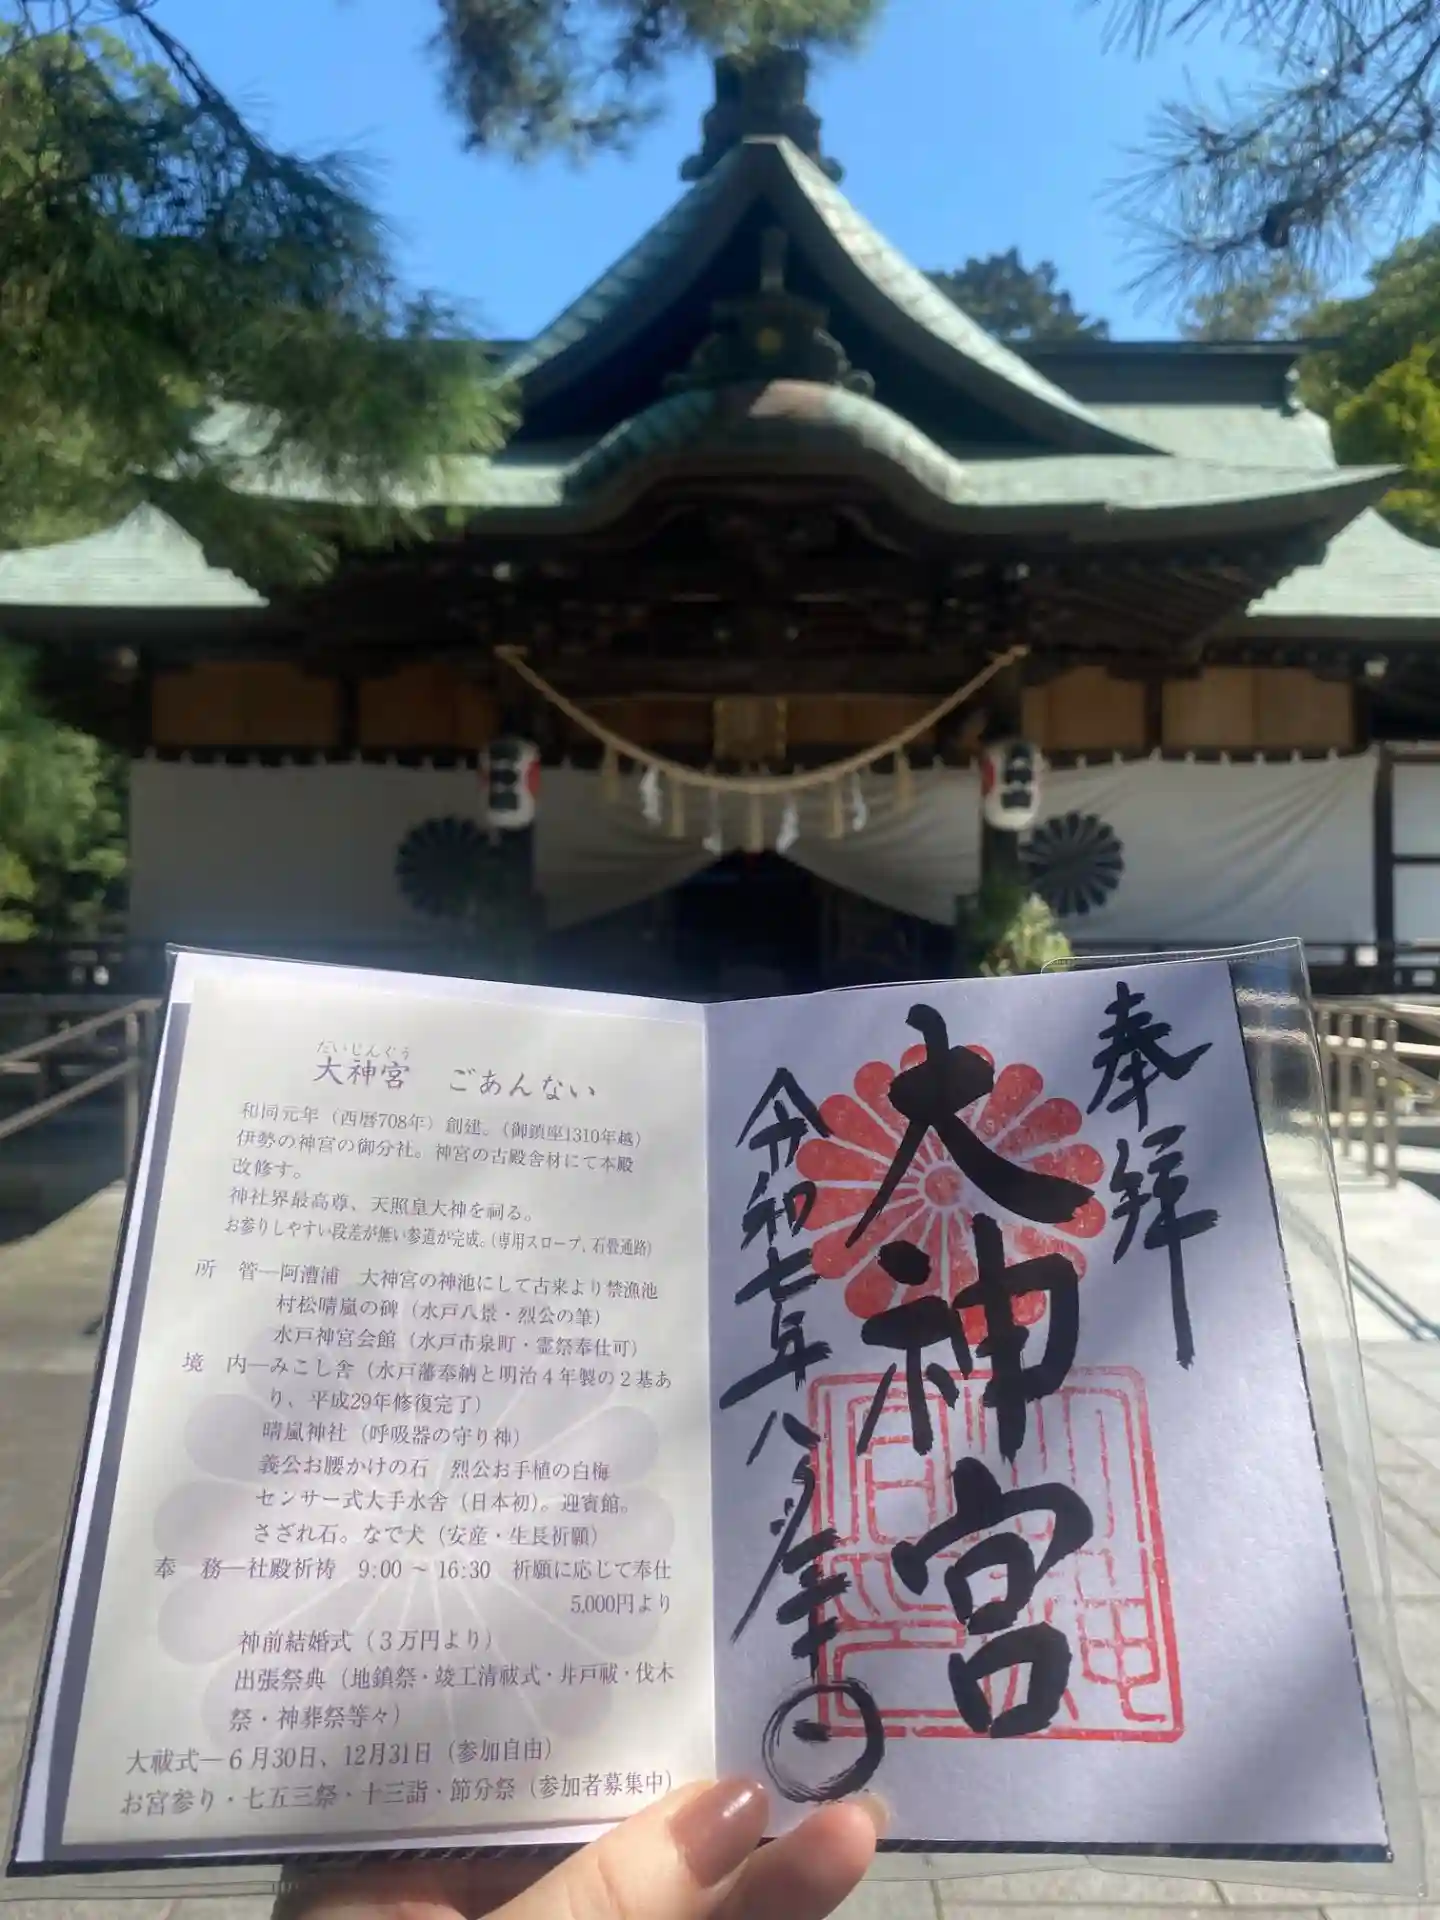 だいじんぐう
大神宮　ごあんない
和同元年（西暦708年）創建。（御鎮座1310年越）
伊勢の神宮の御分社。神宮の古殿舎材にて本殿
改修す。
神社界最高尊、天照皇大神を祠る。
お参りしやすい段差が無い参道が完成。（専用スロープ、石畳通路）
所　管―阿漕浦　大神宮の神池にして古来より禁漁池
村松晴嵐の碑（水戸八景・烈公の筆）
水戸神宮会館（水戸市泉町・霊祭奉仕可）
境　内―みこし舎（水戸藩奉納と明治４年製の２基あ
り、平成29年修復完了）
晴嵐神社（呼吸器の守り神）
義公お腰かけの石　烈公お手植の白梅
センサー式大手水舎（日本初）。迎賓館。
さざれ石。なで犬（安産・生長祈願）
奉　務―社殿祈祷　9:00 ～ 16:30　祈願に応じて奉仕
5,000円より
神前結婚式（３万円より）
出張祭典（地鎮祭・竣工清祓式・井戸祓・伐木
祭・神葬祭等々）
大祓式―６月30日、12月31日（参加自由）
お宮参り・七五三祭・十三詣・節分祭（参加者募集中）
奉拝
大神宮
令和七年八月